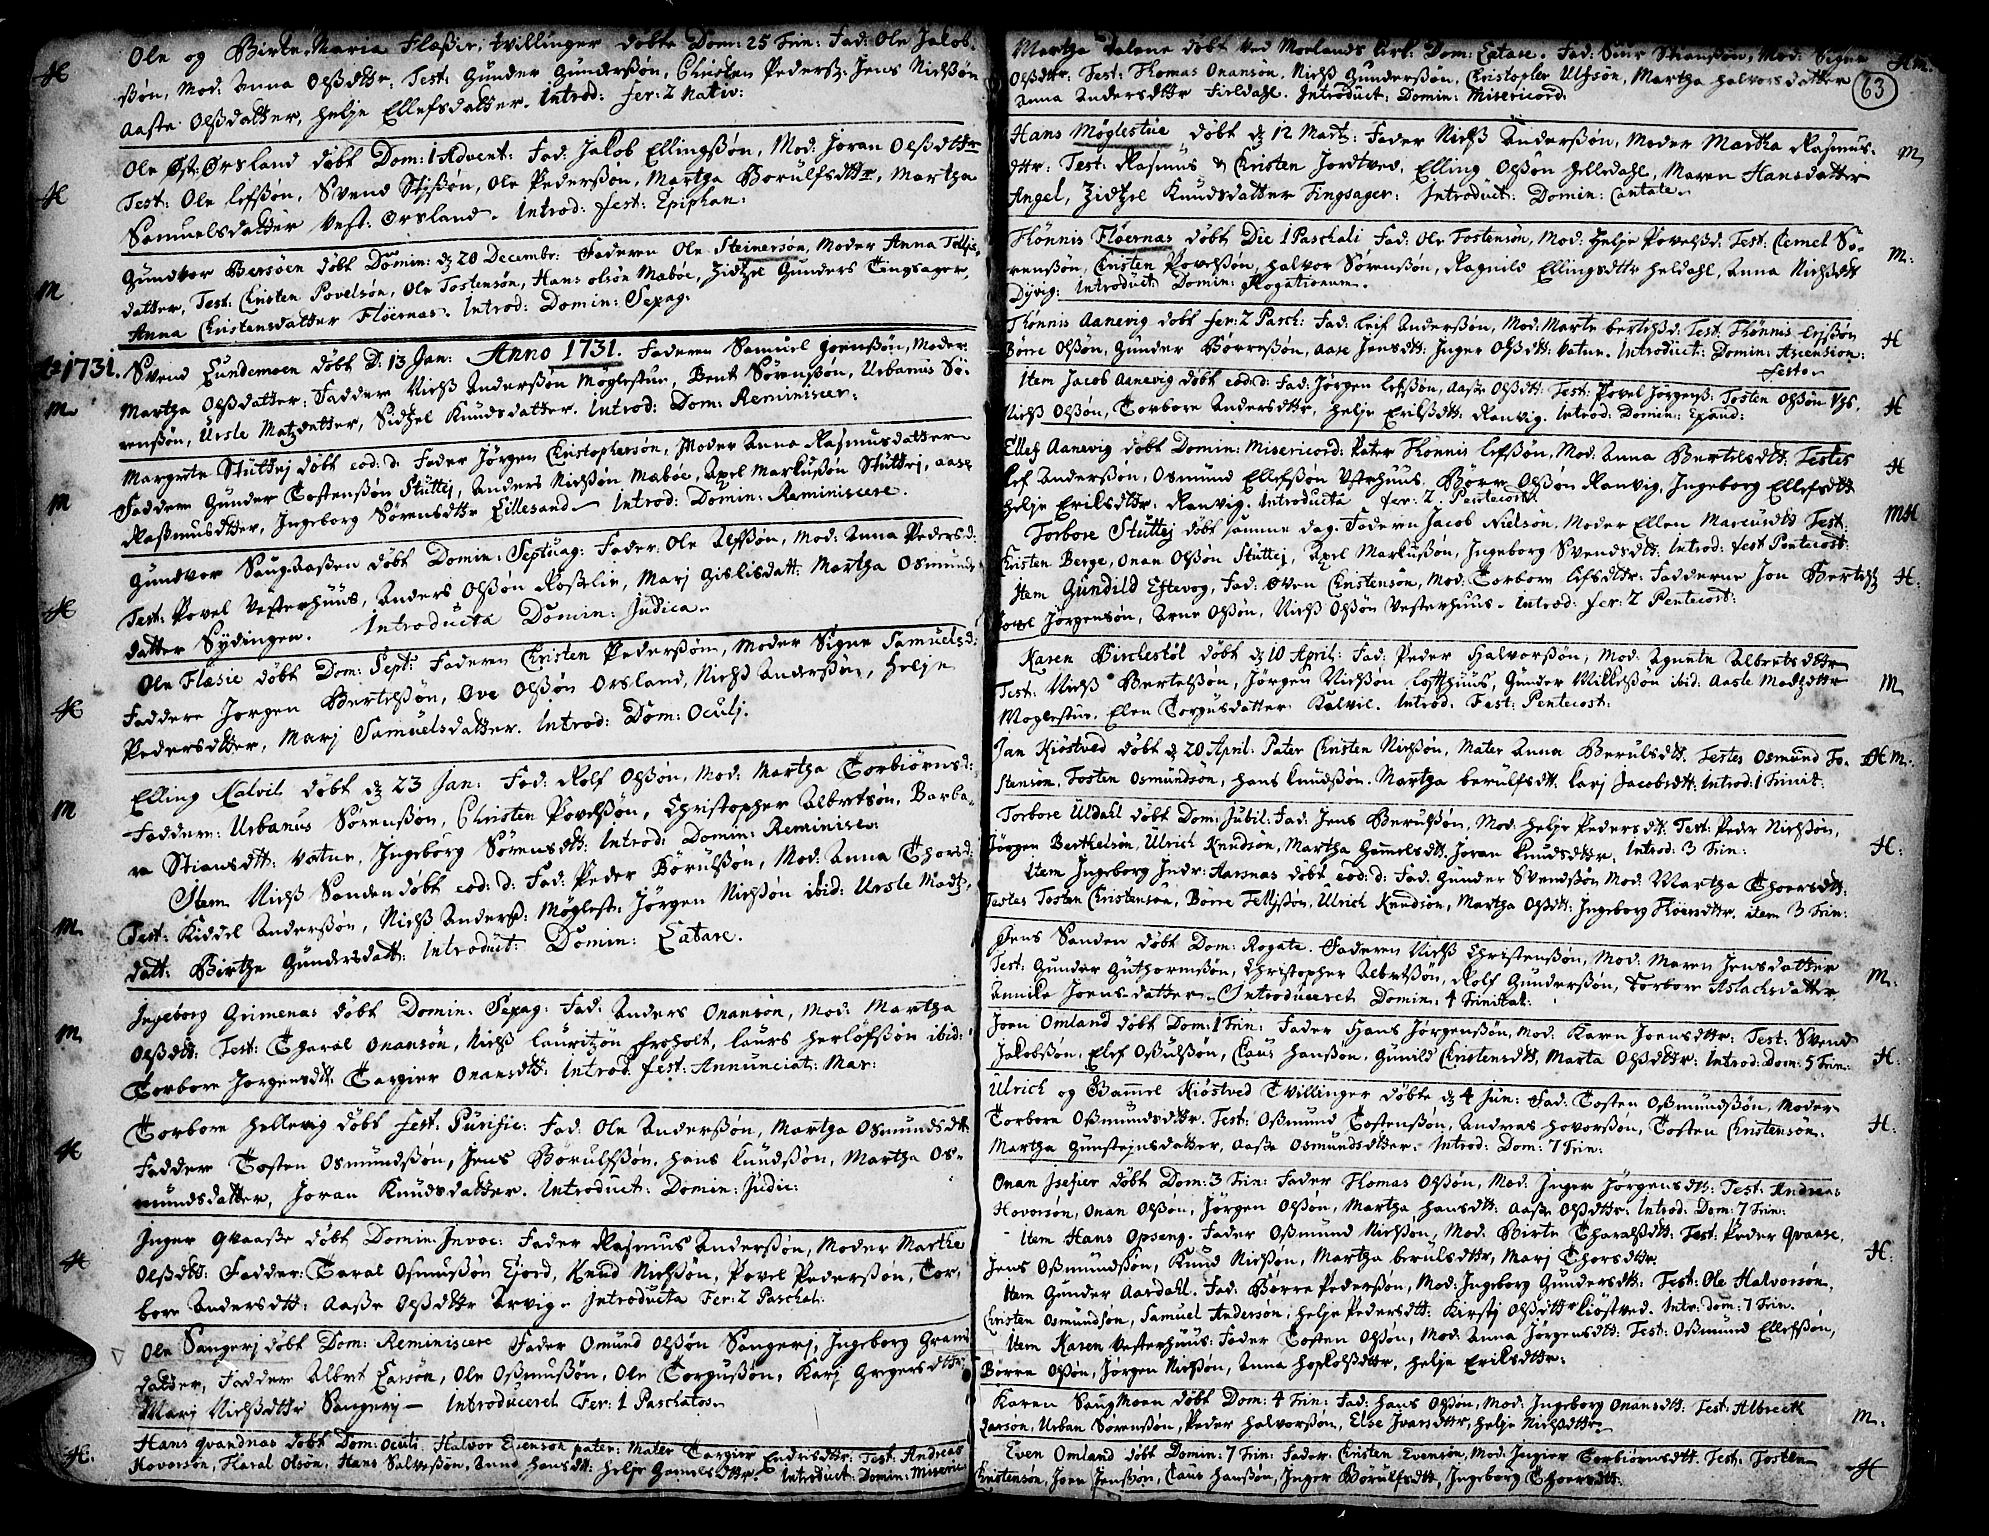 Ole og Birte Maria Flaßie, tvillinger döbte Dom: 25 Trin: Fad: Ole Jakob-
H
ßön, Mod: Anna Olßdttr, Test: Gunder Gunderßön, Christen Pederß: Jens Nielßön
Aaste Olßdatter, Helje Ellefsdatter. Introd: fer: 2 Nativ:
Ole Øst: Ørsland döbt Dom: 1 Advent: Fad: Jakob Ellingßön, Mod: Joran Olßdttr
H
Test: Ole Lefßön, Svend ßön, Ole Pederßön, Martha Börulfsdttr, Martha
Samuelsdatter Vest: Ørsland. Introd: fest: Epiphan:
Gundvor Bersöen döbt Domin: d 20 Decembr: Faderen Ole Steinersön, Moder Anna
M
datter, Test: Christen Povelsön, Ole Tostensön, Hans olsön Maboe, Zidtzel Gunders Tingsager,
Anna Christensdatter Flöernas. Introd: Domin: Sexag:
Ao 1731.
Svend Lundemoen döbt D: 13 Jan: Anno 1731. Faderen Samuel Joenßön, Moder
M
Martha Olßdatter: Faddere Nielß Anderßön Möglestue, Bent Sörenßön, Urbanus Sö-
renßön, Ursle Matzdatter, Sidtzel Knudsdatter. Introd: Dom: Reminiscer:
Margrete Stuttej döbt eod: d: Fader Jörgen Christophersön, Moder Anna Rasmusdatter
M
Faddere Gunder Tostenßön Stuttej, Anders Nielßön Maböe, Axel Markußön Stuttej, Aase
Raßmusdtter, Ingeborg Sörensdttr Lillesand. Introd: Domin: Reminiscere.
Gundvor döbt Domin: Septuag: Fader: Ole Lefßön, Mod: Anna Pedersd:
H
Test: Povel Vesterhuus, Anders Olßön Roßelie, Marj Gislisdatt: Martha Osmunds
datter Sÿdingen. Introducta Domin: Judica.
Ole Flasie döbt Dom: Sept: Faderen Christen Pederßön, Moder Signe Samuelsd:
H
Faddere Jörgen Bertelßön, Ove Olßön Orsland, Nielß Anderßön, Helje
Pedersdtter, Marj Samuelsdatter. Introd: Dom: Oculj.
Elling Calvil döbt d 23 Jan: Fad: Rolf Olßön, Mod: Martha Torbiörnsd:
M
Faddere: Urbanus Sörenßön, Christen Povelßön, Christopher Albretsön, Barba-
ra Stiansdtt: Vatne, Ingeborg Sörensdtt: Introd: Domin: Reminisc:
Item Nielß Sanden döbt eod: d: Fad: Peder Börulßön, Mod: Anna Thorsd:
M
Test: Kiddel Anderßön, Nielß Anderß: Möglest: Jörgen Nielßön ibid: Ursle Madtz,
datt: Birthe Gundersdatt: Introduct: Domin: Lætare.
Ingeborg Grimenas döbt Domin: Sexag: Fad: Anders Onansön, Mod: Martha
M
Olßdtt: Test: Tharal Onansön, Nielß Lauritzön Froholt, Laurs Herlöfßön ibid:
Torbore Jorgensdtt: Targier Onansdtt: Introd: fest: Annunciat: Mar:
Torbore Hellevig döbt fest: Purific: Fad: Ole Anderßön, Martha Osmundsdtt
H
Fadder Tosten Osmundßön, Jens Börulfßön, Hans Knudßön, Martha Os-
mundsdatter, Joran Knudsdatter. Introduct: Domin: Judic:
Inger Qvaaße döbt Domin: Invoc: Fader Rasmus Anderßön, Moder Marthe
H
Olßdtt: Fadder: Taral Osmußön Ejord, Knud Nielßön, Povel Pederßön, Tor-
bore Andersdtt: Aaße Olßdttr Arvig. Introducta Fer: 2 Paschat:
Ole Sangerj döbt Dom: Reminiscere Fader Omund Olßön Sangerj, Ingeborg
datter, Fadder Albret Larsön, Ole Oßmußön, Ole Torgußön, Karj Gregersdttr
Marj Nielßdttr Sangerj. Introduceret Fer: 1 Paschatos.
Hans Qvandnas döbt Dom: Oculi. Halvor Evenson pater: Mater Targier Endresdttr: Test: Andreas
H.
Hovorsön, Tharal Olsön, Hans Salveßön, Anna Hansdtt: Helje Gamelsdttr. Introduct: Domin: Miseric:
63
Martha Talene döbt ved Moelands Kirk: Dom: Lætare. Fad: Siur Stianßön, Mod: Signe
HM
Olßdttr. Test: Thomas Onansön. Nielß Gunderßön, Christopher Ulfsön, Martha Halvorsdatter
Anna Andersdttr Tveldahl. Introduct: Domin: Misericord:
Hans Möglestue döbt d 12 Marti: Fader Nielß Anderßön, Moder Martha Rasmus-
M
dttr: Test: Rasmus & Christen Jordtved, Elling Olßön Helledahl, Maren Hansdatter
Angel, Zidtzel Knudsdatter Tingsager: Introduct: Domin: Cantate.
Thönnis Flöernas döbt Die 1 Paschali Fad: Ole Tostensön, Mod: Helje Povelßd. Test: Clemet Sö-
M:
renßön, Christen Povelßön, Halvor Sörenßön, Ragnild Ellingsdttr Heldahl, Anna Nielßdtt
Dijvig: Introduct: Domin: Rogationum.
Thönnis Aanevig döbt fer: 2 Pasch: Fad: Leif Anderßön, Mod: Marte Bertelßd: Test: Thönnis Lefßön
H
Börre Olßön, Gunder Börreßön, Aase Jensdtt: Inger Olßdtt: Vatne. Introduct: Domin: Ascension:
festo.
Item Jacob Aanevig döbt eod: d: Fad: Jörgen Lefßön, Aaße Olßdtt: Test: Povel Jörgenß: Tosten Olßön
H
Nielß Olßön, Torbore Andersdttr, Helje Erikßdtt: Ranvig. Introd: Domin: Exaud:
Ellef Aanevig döbt Domin: Misericord: Pater Thonnis Lefßön, Mod: Anna Bertelsdtt: Testes
H
Lef Anderßön, Osmund Ellefßön Vesterhuus, Börre Olßön Ranvig, Ingeborg Ellefsdtt
Helje Eriksdttr: Ranvig. Introducta fer: 2. Pentecost:
Torbore Stuttej döbt samme dag: Faderen Jacob Nielsön, Moder Ellen Marcusdtt Test:
MH
Christen Berge, Onan Olßön Stuttej, Axel Markußön, Ingeborg Svendsdtt: Introd: fest Pentecost:
Item Gundild Eftevog, Fad: Oven Christensön, Mod: Torbore Lefsdttr: Fadderne Jon Bertelß
H:
Povel Jörgensön, Arne Olßön, Nielß Olßön Vesterhuus. Introd: fer: 2 Pentecost:
Karen Birchestöl döbt d 10 April: Fad: Peder Halvorßön, Mod: Agnete Albretsdttr
M
Test: Nielß Bertelßön, Jörgen Nielßön Lofthuus, Gunder Villeßön ibid: Aasle Madtzdttr
Moglestue, Elen Torgusdatter Kalvil. Introd: Fest: Pentecost:
Jan Kiöstved döbt d 20 April: Pater Christen Nielßön, Mater Anna Berulsdtt. Testes Osmund To-
HM:
stensön, Tosten Osmundsön, Hans Knudßön. Martha berulfsdtt: Karj Jacobsdtt: Introd: 1 Trinit:
Torbore Uldahl döbt Dom: Jubil: Fad: Jens Berulßön, Mod: Helje Pedersdtt: Test: Peder Nielßön,
H:
Jörgen Berthelsön, Ulrich Knudsön, Martha Gamelsdtt: Joran Knudsdttr. Introd: 3 Trin:
Item Ingeborg Indr: Aarsnas döbt eod: d: Fad: Gunder Svendßön Mod: Martha Thoersdtt:
Testes Tosten Christensön, Börre Telljßön, Ulrich Knudson, Martha Olßdtt: Ingeborg Thoersdttr. item 3 Trin:
Jens Sanden döbt Dom: Rogate. Faderen Nielß Christenßön, Mod: Maren Jensdatter
M:
Test: Gunder Guthormßön, Christopher Albretßön, Rolf Gunderßön, Torbore Aslachsdatter
Annike Joensdatter. Introduceret Domin: 4 Trinitat:
Joen Omland döbt Dom: 1 Trin: Fader Hans Jörgenßön, Mod: Karen Joensdttr: Test: Svend
H:
Jakobßön, Elef Oßulßön, Claus Hanßon, Gunild Christensdtt, Marta Olßdttr: Introd: Dom: 5 Trin:
Ulrich og Gamel Kiöstved Tvillinger döbte d 4 Jun: Fad: Tosten Oßmundßön, Moder
H:
Torbore Oßmundsdttr. Test: Oßmund Tostenßön, Andreas Hovorßön, Tosten Christensön.
Martha Gunstejnsdatter, Aaße Osmundsdtter. Introd: Dom: 7 Trin:
Onan Isefier döbt Dom: 3 Trin: Fader Thomas Olßön, Mod: Inger Jörgensdtt: Test: Andreas
Hovorsön, Onan Olßön, Jörgen Olßön, Martha Hansdtt: Aaße Olßdttr: Introd: Dom: 7 Trin:
Item Hans Opseng. Fader Oßmund Nielßön, Mod: Birte Tharalßdtt: Test: Peder Qvaase,
H:
Jens Oßmundßön, Knud Nielßön, Martha berulsdttr, Marj Thorsdttr.
Item Gunder Aardahl. Fad: Börre Pederßön, Mod: Ingeborg Gundersdtt: Test: Ole Halvorsön,
Christen Osmundsön, Samuel Andersön, Helje Pedersdtt: Kirstj Olßdttr Kiöstved. Intr: dom: 7 Trin.
Item Karen Vesterhuus: Fader Tosten Olßön, Mod: Anna Jörgensdtt: Test: Oßmund Ellefßön,
Börre Olßön, Jörgen Nielßön, Anna Hofkolßdttr, Helje Eriksdttr:
Karen SaugMoen döbt Dom: 4 Trin: Fad: Hans Olßön, Mod: Ingeborg Onansdtt: Test: Albrecht
M:
Larson, Urban Sörenßön, Peder Halvorßön, Else Ivarsdttr, Helje Nielßdttr.
Even Omland döbt Domin: 7 Trin: Fader: Christen Evensön, Mod: Ingier Torbiörnsdtt. Test: Tosten
H
Christenson, Joen Jenßön, Claus Hanßön, Inger Börulfsdtt, Ingeborg Thoersdtt.